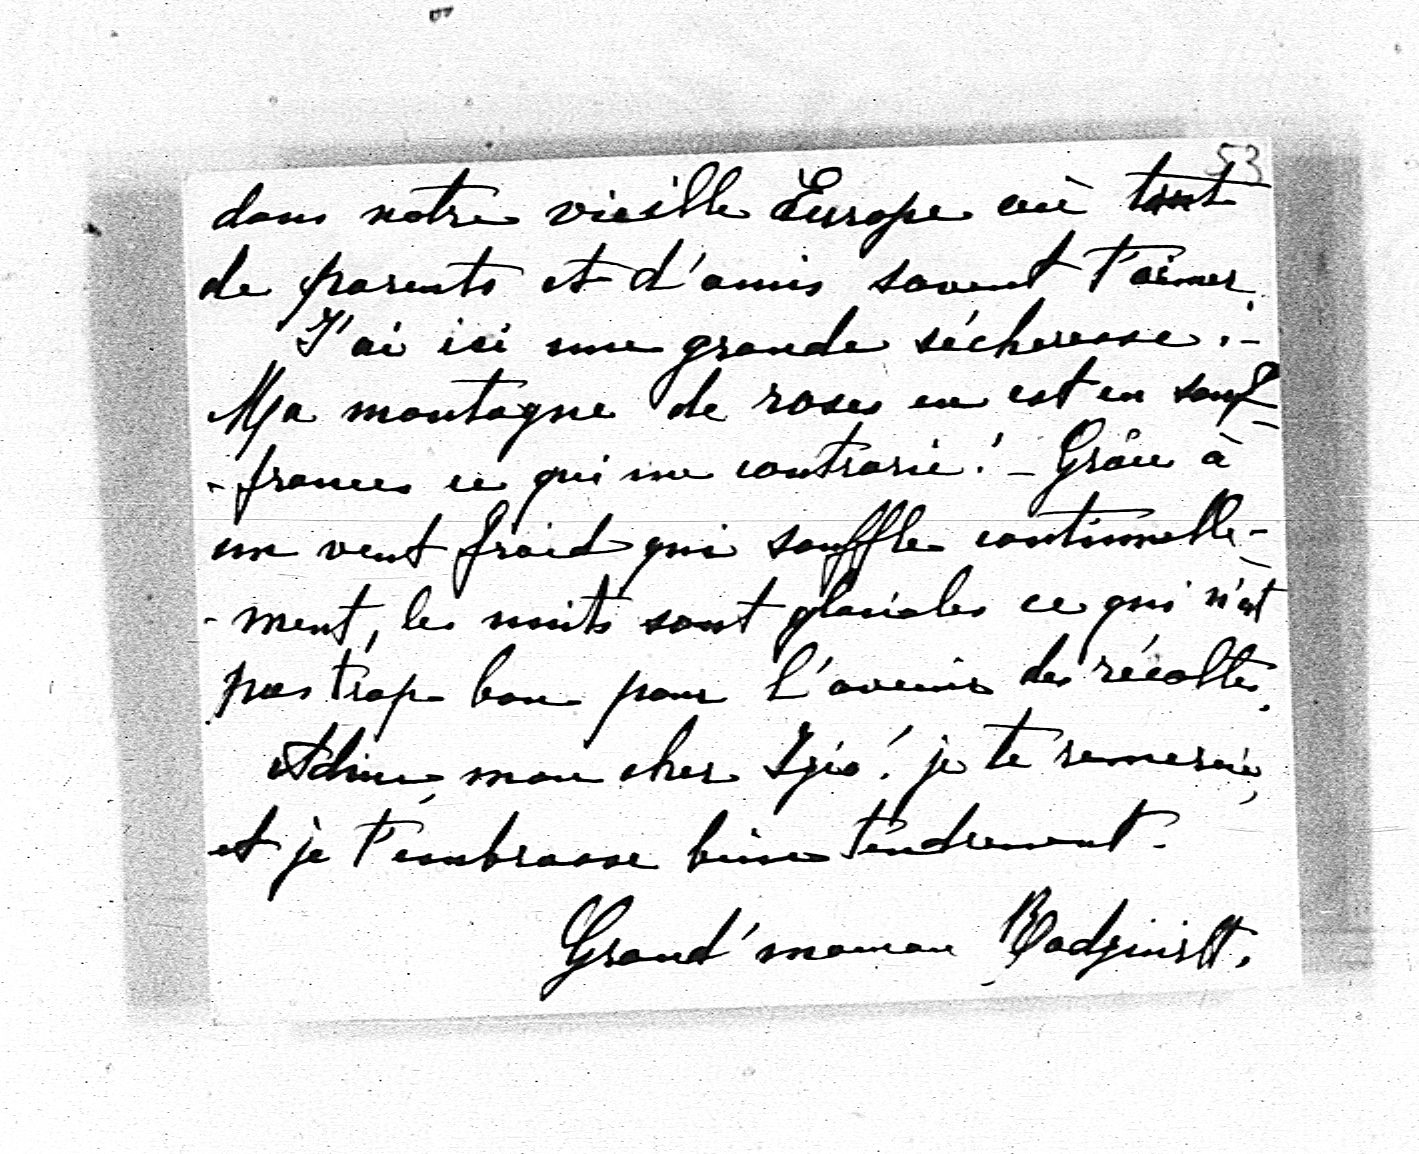 53
dans notre vieille Europe où tant
de parents et d'amis savent t'aimer.
J'ai ici une grande sécheresse :-
Ma montagne de roses en est en souf-
-frances ce qui me contrarie ! - Grâce à
un vent froid qui souffle continuelle-
-ment, les nuits sont glaciales ce qui n'est
pas trop bon pour l'avenir des récoltes.
Adieu, mon cher je te remercie,
et je t'embrasse bien tendrement.
Grand'maman